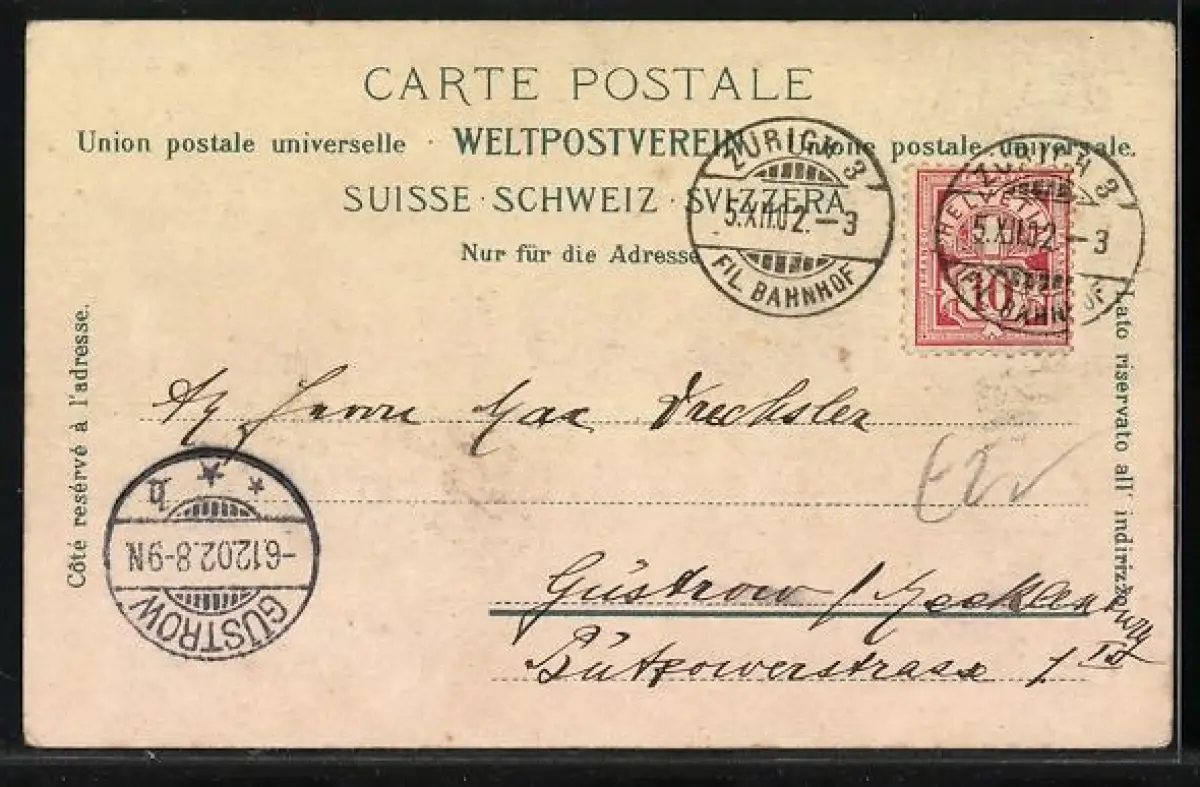 CARTE POSTALE
Union postale universelle · WELTPOSTVEREIN · Unione postale universale.
SUISSE · SCHWEIZ · SVIZZERA
Nur für die Adresse
Côté resérvé à l'adresse.
Lato riservato all' indirizzo
ZÜRICH 3
5.XII.02.–3
FIL. BAHNHOF
ZÜRICH 3
5.XII.02.–3
FIL. BAHNHOF
HELVETIA
10
Herrn Max Drechsler
Güstrow / Mecklenburg
Bützowerstrasse 1
GÜSTROW
-6.12.02.8-9N.